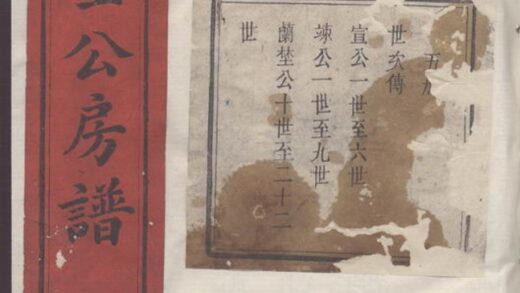 公房譜
五
世次傳
宣公一世至六世
竦公一世至九世
蘭埜公十世至二十二
世